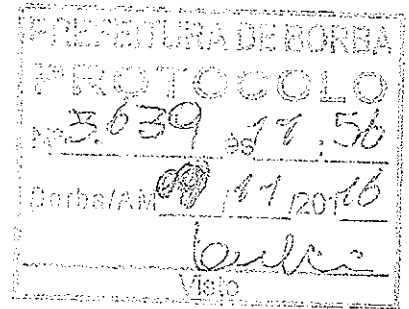 PREFEITURA DE BORBA
PROTOCOLO
Nº 3.639 às 11:56
Borba/AM 09/11/2016
Visto